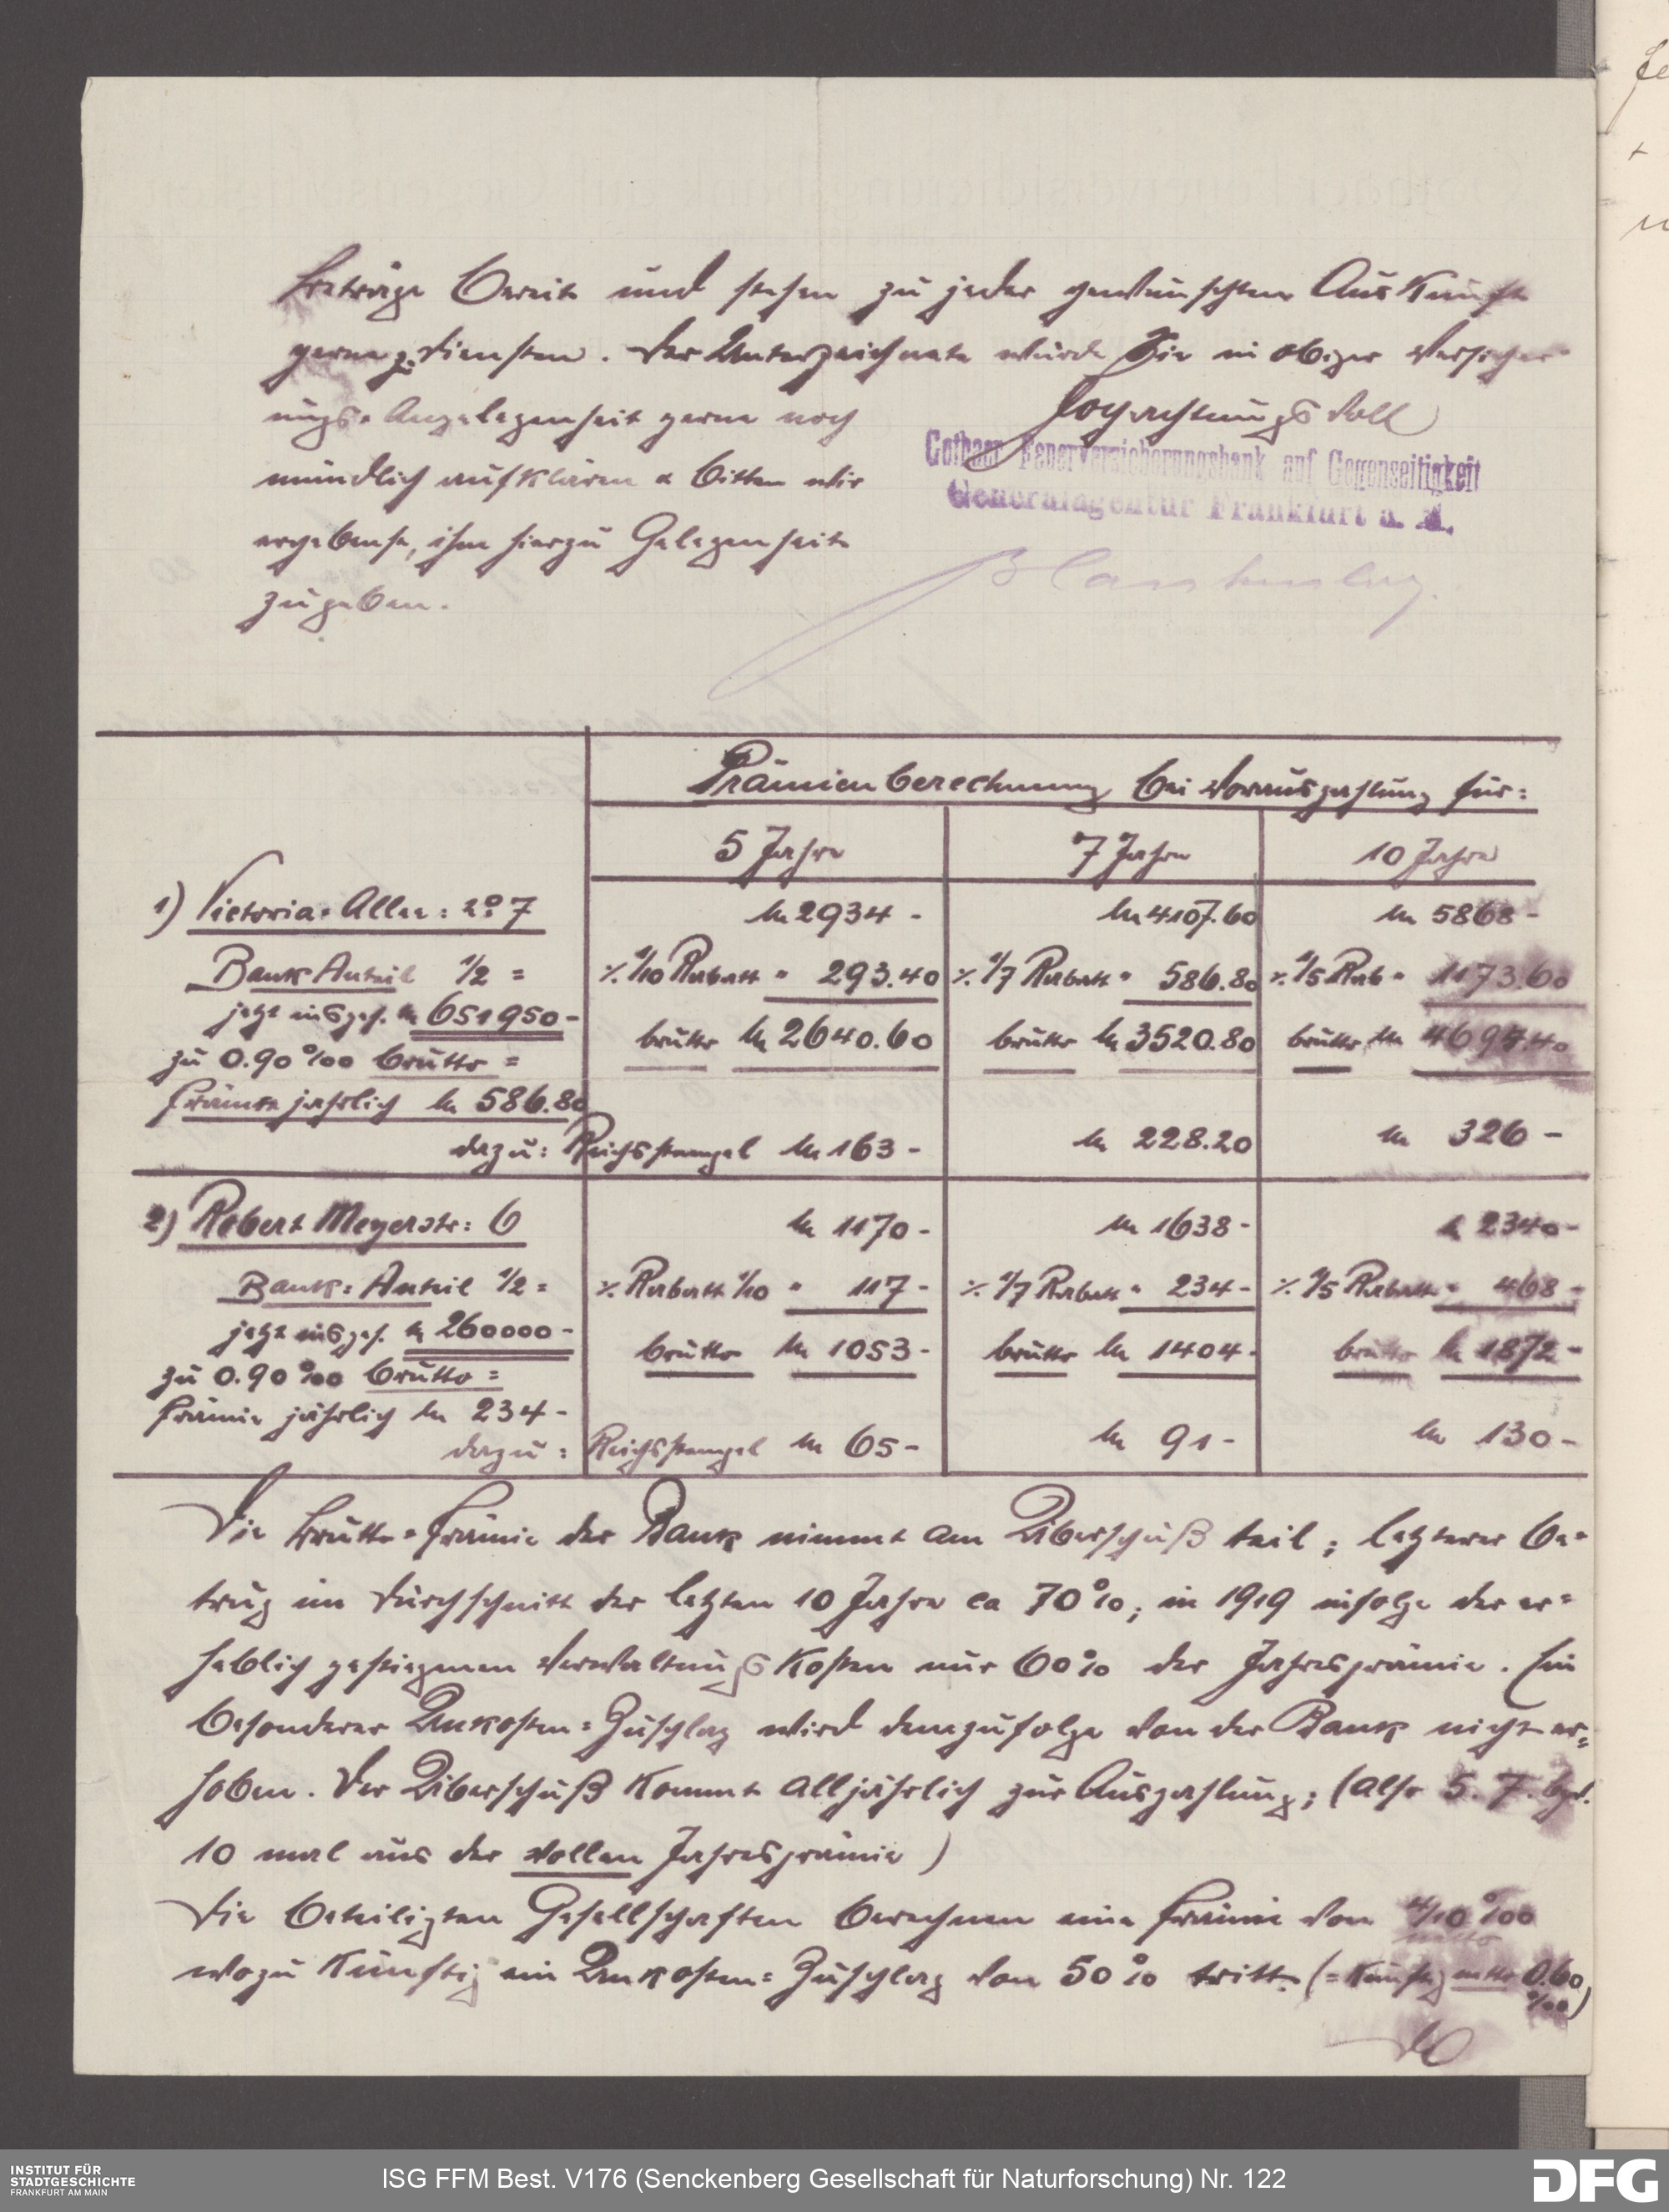 Beträge bereit und stehen zu jeder gewünschten Auskunft
gerne z. Diensten. Der Unterzeichnete würde Sie in obiger Versicher-
ungs-Angelegenheit gerne noch
mündlich aufklären & bitten wir
ergebenst, ihm hierzu Gelegenheit
zu geben.
Hochachtungsvoll
Gothaer Feuerversicherungsbank auf Gegenseitigkeit
Generalagentur Frankfurt a. M.
Prämienberechnung bei Vorauszahlung für:
5 Jahre 7 Jahre 10 Jahre
1) Victoria-Allee: No 7 M 2934 - M 4107.60 M 5868 -
Bank Anteil 1/2 = ٪ 1/10 Rabatt " 293.40 ٪ 1/7 Rabatt " 586.80 ٪ 1/5 Rab " 1173.60
jetzt insges. M 651950 -
brutto M 2640.60 brutto M 3520.80 brutto M 4694.40
zu 0.90 ‰ brutto =
Prämie jährlich M 586.80
dazu: Reichsstempel M 163 - M 228.20 M 326 -
2) Robert Meyerstr: 6 M 1170 - M 1638 - M 2340 -
Bank-Anteil 1/2 = ٪ Rabatt 1/10 " 117 - ٪ 1/7 Rabatt " 234 - ٪ 1/5 Rabatt " 468 -
jetzt insges. M 260000 -
brutto M 1053 - brutto M 1404 - brutto M 1872 -
zu 0.90 ‰ brutto =
Prämie jährlich M 234 -
dazu: Reichsstempel M 65 - M 91 - M 130 -
Die Brutto-Prämie der Bank nimmt am Überschuß teil; letzterer be-
trug im Durchschnitt der letzten 10 Jahre ca 70%; in 1919 infolge der er-
heblich gestiegenen Verwaltungskosten nur 60% der Jahresprämie. Ein
besonderer Unkosten-Zuschlag wird demzufolge von der Bank nicht er-
hoben. Der Überschuß kommt alljährlich zur Auszahlung; (also 5. 7. bzw.
10 mal aus der vollen Jahresprämie)
Die beteiligten Gesellschaften berechnen eine Prämie von 4/10 ‰
netto
wozu künftig ein Unkosten-Zuschlag von 50% tritt (= künftig netto 0.60
‰)
INSTITUT FÜR
STADTGESCHICHTE
FRANKFURT AM MAIN
ISG FFM Best. V176 (Senckenberg Gesellschaft für Naturforschung) Nr. 122
DFG